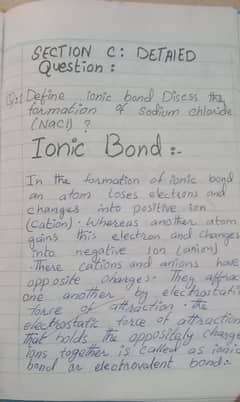 SECTION C: DETAIED
Question :
Q:1 Define ionic bond Discss the
formation of Sodium chloride
(NaCl) ?
Ionic Bond :-
In the formation of ionic bond
an atom loses electrons and
changes into positive ion
(Cation). Whereas another atom
gains this electron and changes
into negative Ion (anion)
These cations and anions have
opposite charges. They attract
one another by electrostatic
force of attraction. the
electrostatic force of attraction
that holds the oppositely charge
ions together is called as ionic
bond or electrovalent bond:-